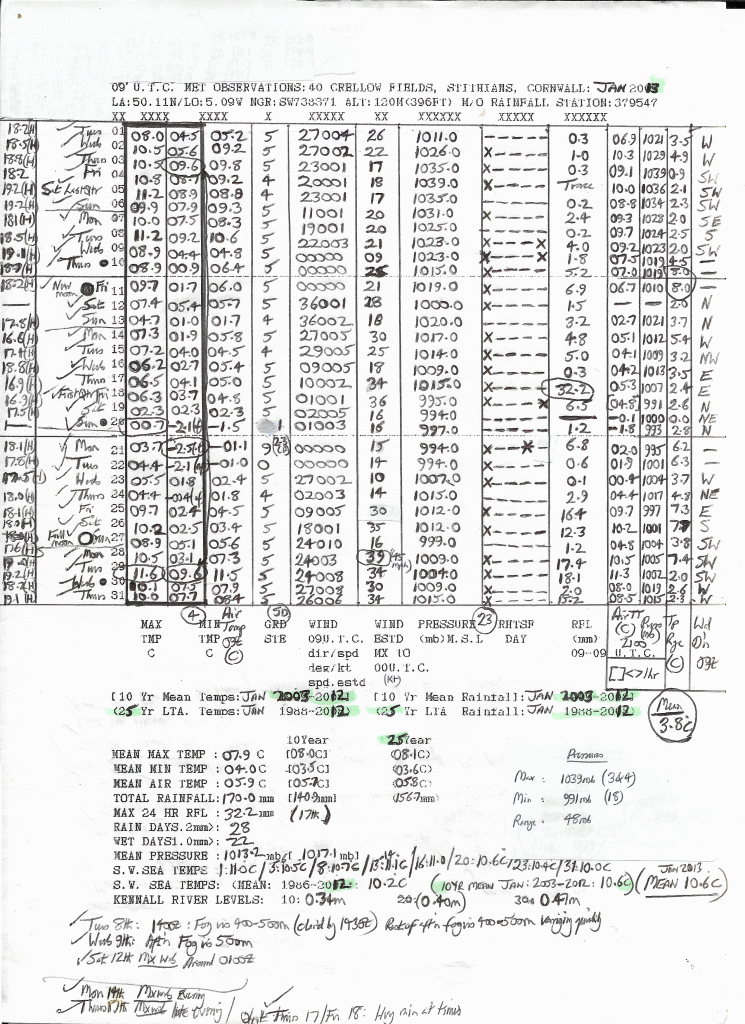 09' U.T.C. MET OBSERVATIONS:40 CRELLOW FIELDS, STITHIANS, CORNWALL: JAN 2013
LA:50.11N/LO:5.09W NGR:SW738371 ALT:120M(396FT) M/O RAINFALL STATION:379547
XX XXXX XXXX X XXXXX XX XXXXXX XXXXX XXXXXX
18.2(H) Tues 01 08.0 04.5 05.2 5 27004 26 1011.0 ----- 0.3 06.9 1021 3.5 W
18.5(H) Wed 02 10.5 05.6 09.2 5 27002 22 1026.0 X---- 1.0 10.3 1029 4.9 W
18.8(H) Thurs 03 10.5 09.6 09.8 5 23001 17 1035.0 X---- 0.3 09.1 1039 0.9 SW
18.2 Fri 04 10.8 08.7 09.2 4 20001 18 1039.0 X---- Trace 10.0 1036 2.1 SW
19.2(H) Sat 05 11.2 08.9 08.8 4 23001 17 1035.0
19.2(H) Sun 06 09.9 07.9 09.3 5 11001 20 1031.0 0.2 08.8 1034 2.3 SW
18.1(H) Mon 07 10.0 07.5 08.3 5 19001 20 1025.0 2.4 09.3 1028 2.0 SE
18.5(H) Tues 08 11.2 09.2 10.6 5 22003 21 1023.0 X---X 0.2 09.7 1024 2.5 S
19.1(H) Wed 09 08.9 04.4 04.8 5 00000 09 1023.0 X---X 4.0 09.2 1023 2.0 SW
18.7(H) Thurs 10 08.9 00.9 06.4 5 00000 1015.0 X---- 5.2 07.0 1019 8.0 —
18.2(H) New moon Fri 11 09.7 01.7 06.0 5 00000 19 1019.0 6.9 8.0 —
Sat 12 07.4 05.4 05.7 5 36001 28 1000.0 1.5 — — 2.0 N
17.8(H) Sun 13 04.7 01.0 01.7 4 36002 18 1020.0 3.2 02.7 1021 3.7 N
16.6(H) Mon 14 07.3 01.9 05.8 5 27005 30 1017.0 4.8 05.1 1012 5.4 W
17.4(H) Tues 15 07.2 04.0 04.5 4 29005 25 1014.0 5.0 04.1 1009 3.2 NW
18.8(H) Wed 16 06.2 02.7 05.4 5 09005 18 1009.0 0.3 04.2 1013 3.5 E
16.9(H) Thurs 17 06.5 04.1 05.0 5 10002 34 1015.0 32.2 05.3 1007 2.4 E
16.9(H) Fri 18 06.3 03.7 04.8 5 01001 36 995.0 6.5 [04.8] 991 2.6 N
17.5(H) Sat 19 02.3 02.3 02.3 5 02005 16 994.0 -0.1 1000 0.0 NE
Sun 20 00.7 -2.1(4) -1.5 1 01003 16 997.0 1.2 -1.8 993 2.8 N
18.1(H) Mon 21 03.7 -2.5(4) -01.1 9 00000 15 994.0 X--X- 6.8 02.0 995 6.2 —
17.8(H) Tues 22 04.4 -2.1(4) -01.0 0 00000 14 994.0 X---- 0.6 01.9 1001 6.3 —
17.5(H) Wed 23 05.5 01.8 02.4 5 27002 10 1007.0 X---- 0.1 00.4 1004 3.7 W
18.0(H) Thurs 24 04.4 01.8 4 02003 14 1015.0 2.9 04.4 1017 4.8 NE
18.1(H) Fri 25 09.7 02.4 04.5 5 09005 30 1012.0 X---- 16.4 09.7 997 7.3 E
Sat 26 10.2 02.5 03.4 5 18001 35 1012.0 X---- 12.3 10.2 1001 7.7 S
Full moon Sun 27 08.9 05.1 05.6 5 24010 16 999.0 1.2 04.8 1004 3.8 SW
Mon 28 10.5 03.1 07.3 5 24003 39 (45 mph) 1009.0 X---- 17.4 10.5 1005 7.4 SW
19.2(H) Tues 29 11.6 09.6 11.5 5 24008 34 1004.0 X---- 18.1 11.3 1002 2.0 SW
Wed 30 10.1 07.5 07.9 5 27008 30 1009.0 X---- 0.8 1019 2.6 W
19.1 Thurs 31 10.0 07.7 08.4 5 26006 34 1015.0 X---- 15.2 08.5 1015 2.3 W
(4) Air (50) (23) AirTT Press Tp Wd
MAX MIN Temp GRD WIND WIND PRESSURE RHTSF RFL (C) (mb) Rge D'n
TMP TMP 09Z STE 09U.T.C. ESTD (mb)M.S.L DAY (mm) 2100 (C) 09Z
C C (C) dir/spd MX TO 09-09 U.T.C.
deg/kt 00U.T.C. []<>/hr
spd.estd (kt)
[10 Yr Mean Temps:JAN 2003-2012] [10 Yr Mean Rainfall:JAN 2003-2012]
(25 Yr LTA. Temps:JAN 1988-2012) (25 Yr LTA Rainfall:JAN 1988-2012)
Mean 3.8C
10Year 25Year
MEAN MAX TEMP : 07.9 C [08.0C] (08.1C)
MEAN MIN TEMP : 04.0 C [03.5C] (03.6C)
MEAN AIR TEMP : 05.9 C [05.7C] (05.8C)
TOTAL RAINFALL:170.0 mm [140.9mm] (156.7mm)
MAX 24 HR RFL : 32.2 mm (17th)
RAIN DAYS.2mm): 28
WET DAYS1.0mm): 22
Pressures
Max : 1039mb (3&4)
Min : 991mb (18)
Range : 48mb
MEAN PRESSURE : 1013.2 mb[ 1017.1 mb]
S.W.SEA TEMPS 1:11.0C/3:10.5C/8:10.7C/13:11.1C/16:11.0/20:10.6C/23:10.4C/31:10.0C
S.W. SEA TEMPS: (MEAN: 1986-2012: 10.2C (10YR MEAN JAN:2003-2012: 10.6C) JAN 2013 (MEAN 10.6C)
KENNALL RIVER LEVELS: 10: 0.34m 20:(0.40m) 30: 0.47m
Tues 8th: 1400Z: Fog vis 400-500m (clrd by 1430Z) Rest of aft'n fog vis 400-500m varying quickly
Wed 9th: Aft'n Fog vis 500m
Sat 12th Mx wd Around 0100Z
Mon 14th Mx wd Evening
Thurs 17th Mx wd late evening / Thurs 17/Fri 18: Hvy rain at times